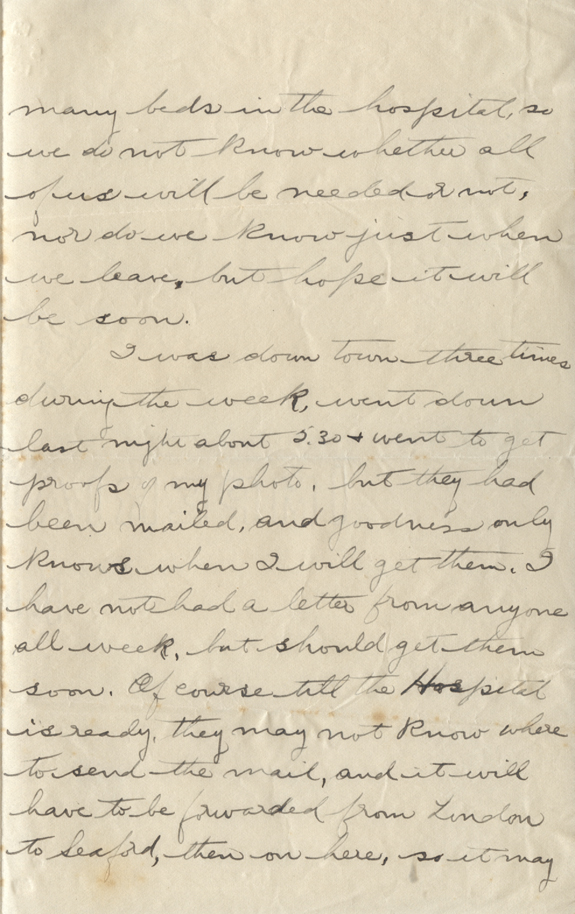 many beds in the hospital, so
we do not know whether all
of us will be needed or not,
nor do we know just when
we leave, but hope it will
be soon.
I was down town three times
during the week, went down
last night about 5.30 + went to get
proofs of my photo, but they had
been mailed, and goodness only
knows when I will get them. I
have not had a letter from anyone
all week, but should get them
soon. Of course till the Hospital
is ready, they may not know where
to send the mail, and it will
have to be forwarded from London
to Seaford, then on here, so it may